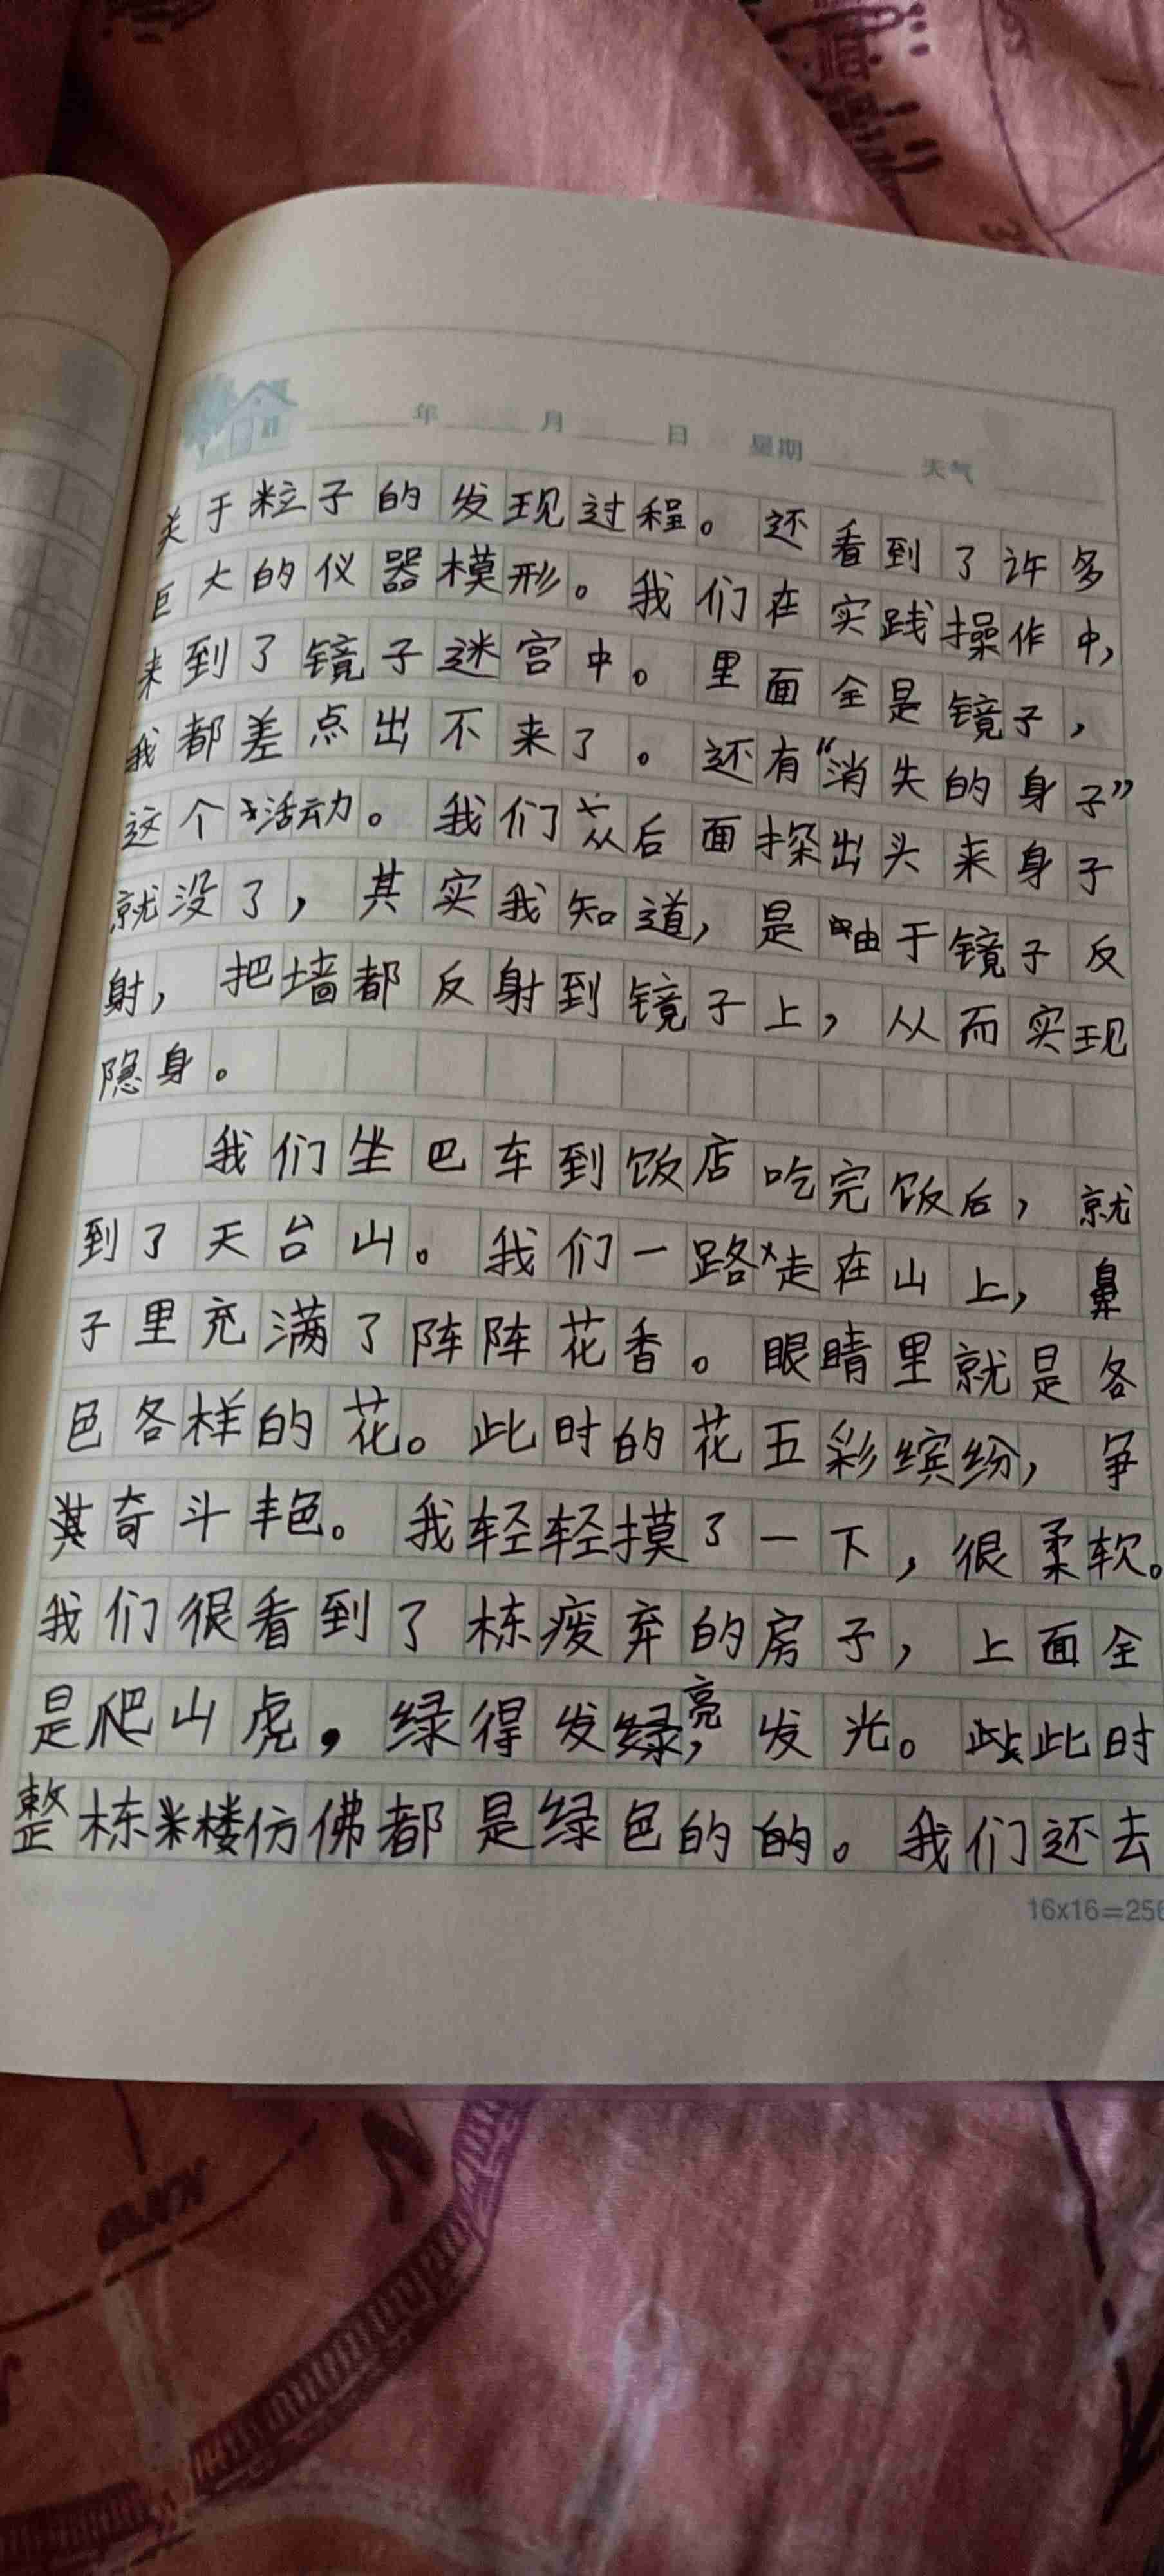 年 月 日 星期 天气
关于粒子的发现过程。还看到了许多
巨大的仪器模形。我们在实践操作中,
来到了镜子迷宫中。里面全是镜子,
我都差点出不来了。还有“消失的身子”
这个活动。我们从后面探出头来身子
就没了,其实我知道,是由于镜子反
射,把墙都反射到镜子上,从而实现
隐身。
我们坐巴车到饭店吃完饭后,就
到了天台山。我们一路走在山上,鼻
子里充满了阵阵花香。眼睛里就是各
色各样的花。此时的花五彩缤纷,争
奇斗艳。我轻轻摸了一下,很柔软。
我们很看到了栋废弃的房子,上面全
是爬山虎,绿得发亮,发光。此时
整栋楼仿佛都是绿色的的。我们还去
16x16=256